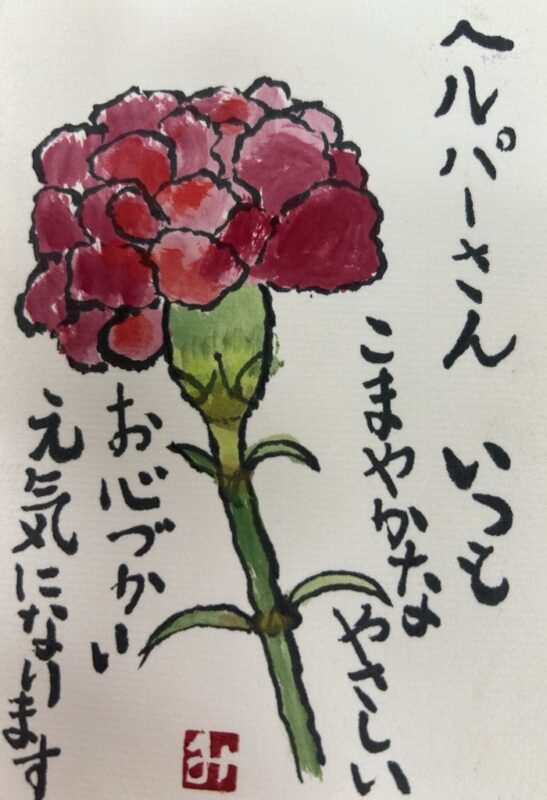 ヘルパーさん いつも
こまやかな
やさしい
お心づかい
元気になります
み